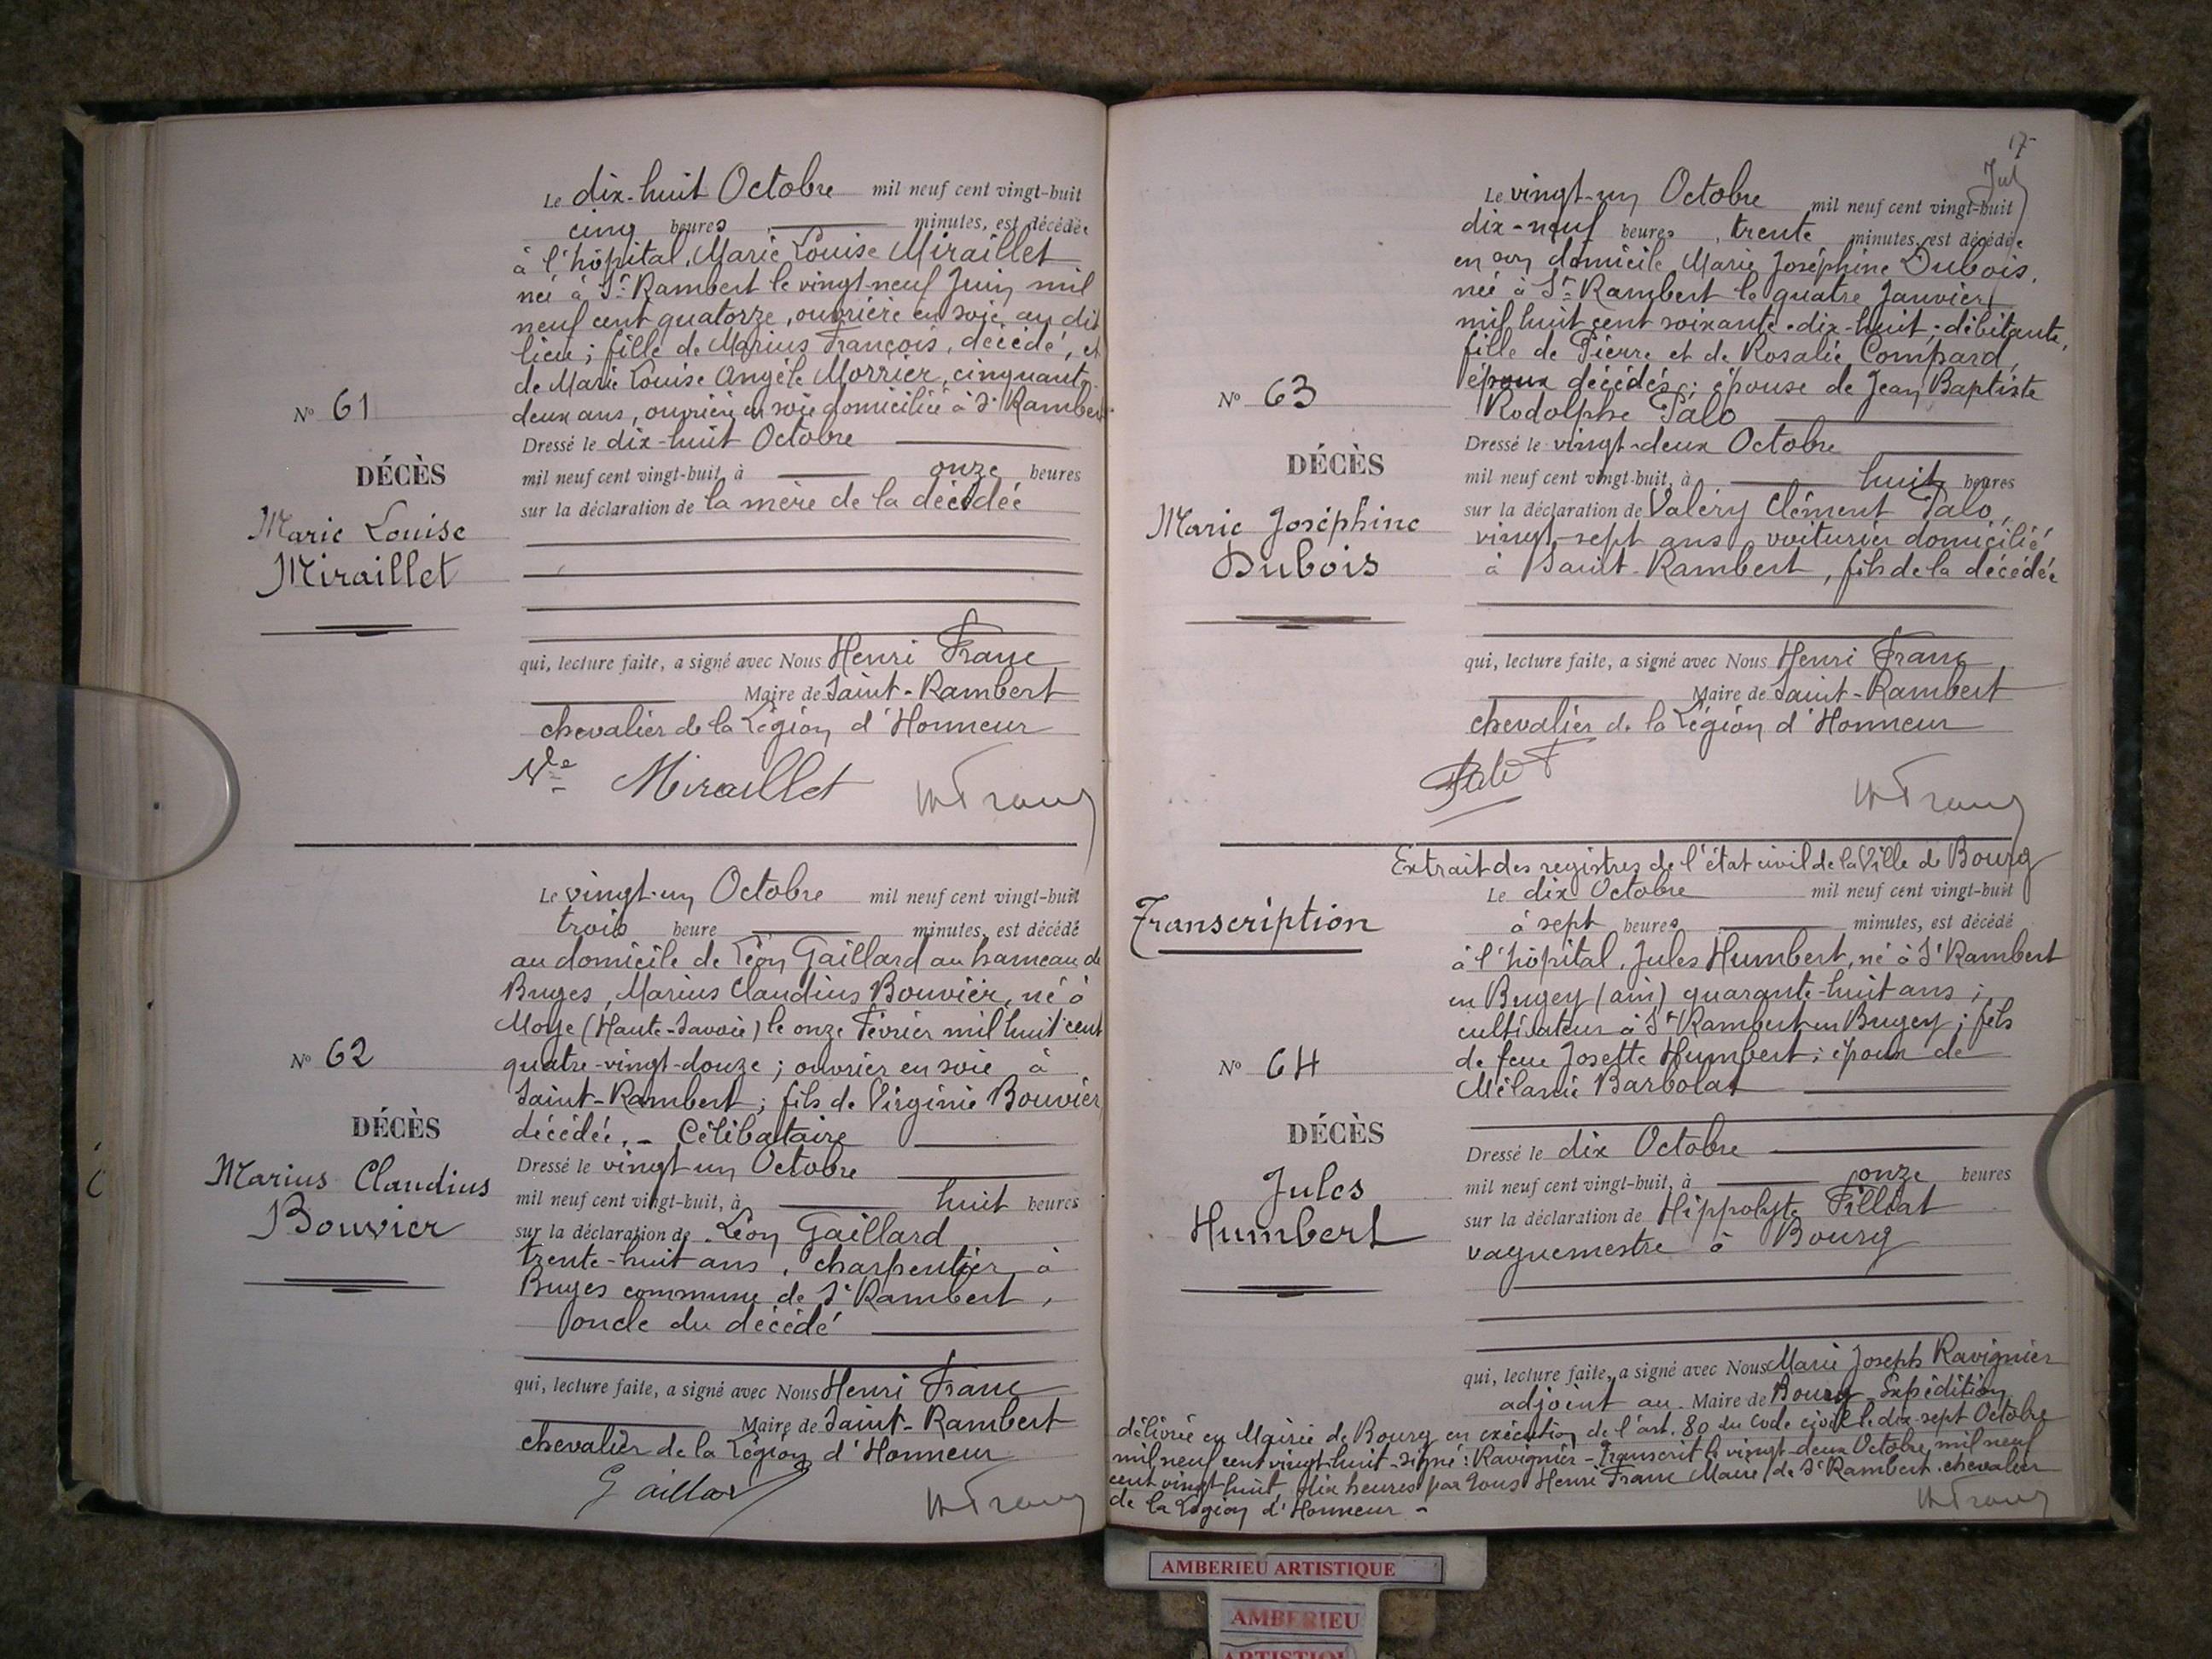 Le dix-huit Octobre mil neuf cent vingt-huit
cinq heures minutes, est décédée
à l'hôpital, Marie Louise Miraillet
née à St Rambert le vingt-neuf Juin mil
neuf cent quatorze, ouvrière en soie au dit
lieu ; fille de Marius François, décédé, et
de Marie Louise Angèle Morrier, cinquante-
deux ans, ouvrière en soie domiciliée à St Rambert
No 61
Dressé le dix-huit Octobre
DÉCÈS
mil neuf cent vingt-huit, à onze heures
sur la déclaration de la mère de la décédée
Marie Louise
Miraillet
qui, lecture faite, a signé avec Nous Henri Franc
Maire de Saint-Rambert
chevalier de la Légion d'Honneur
Vve Miraillet
H Franc
Le vingt-un Octobre mil neuf cent vingt-huit
trois heure minutes, est décédé
au domicile de Léon Gaillard au hameau de
Buges, Marius Claudius Bouvier, né à
Moye (Haute-Savoie) le onze Février mil huit cent
No 62
quatre-vingt-douze ; ouvrier en soie à
Saint-Rambert ; fils de Virginie Bouvier
décédée, - Célibataire
DÉCÈS
Dressé le vingt-un Octobre
Marius Claudius
Bouvier
mil neuf cent vingt-huit, à huit heures
sur la déclaration de Léon Gaillard
trente-huit ans, charpentier à
Buges commune de St Rambert,
oncle du décédé
qui, lecture faite, a signé avec Nous Henri Franc
Maire de Saint-Rambert
chevalier de la Légion d'Honneur
Gaillard
H Franc
17
Jul
Le vingt-un Octobre mil neuf cent vingt-huit
dix-neuf heures, trente minutes, est décédée
en son domicile Marie Joséphine Dubois,
née à St Rambert le quatre Janvier
mil huit cent soixante-dix-huit ; débitante,
fille de Pierre et de Rosalie Compard,
époux décédés ; épouse de Jean Baptiste
Rodolphe Palo
No 63
Dressé le vingt-deux Octobre
DÉCÈS
mil neuf cent vingt-huit, à huit heures
sur la déclaration de Valéry Clément Palo,
Marie Joséphine
Dubois
vingt-sept ans, voiturier domicilié
à Saint-Rambert, fils de la décédée
qui, lecture faite, a signé avec Nous Henri Franc
Maire de Saint-Rambert
chevalier de la Légion d'Honneur
H Franc
Extrait des registres de l'état civil de la Ville de Bourg
Transcription
Le dix Octobre mil neuf cent vingt-huit
à sept heures minutes, est décédé
à l'hôpital, Jules Humbert, né à St Rambert
en Bugey (ain) quarante-huit ans ;
cultivateur à St Rambert en Bugey ; fils
de feue Josette Humbert ; époux de
Mélanie Barbolat
No 64
DÉCÈS
Jules
Humbert
Dressé le dix Octobre
mil neuf cent vingt-huit, à onze heures
sur la déclaration de Hippolyte Pilliat
vaguemestre à Bourg
qui, lecture faite, a signé avec Nous Marie Joseph Ravignier
adjoint au Maire de Bourg - Expédition
délivrée en Mairie de Bourg en exécution de l'art. 80 du Code civil le dix-sept Octobre
mil neuf cent vingt-huit - signé : Ravignier - Transcrit le vingt-deux Octobre, mil neuf
cent vingt huit, dix heures par nous Henri Franc Maire de St Rambert, chevalier
de la Légion d'Honneur -
H Franc
AMBERIEU ARTISTIQUE
AMBERIEU
ARTISTIQUE